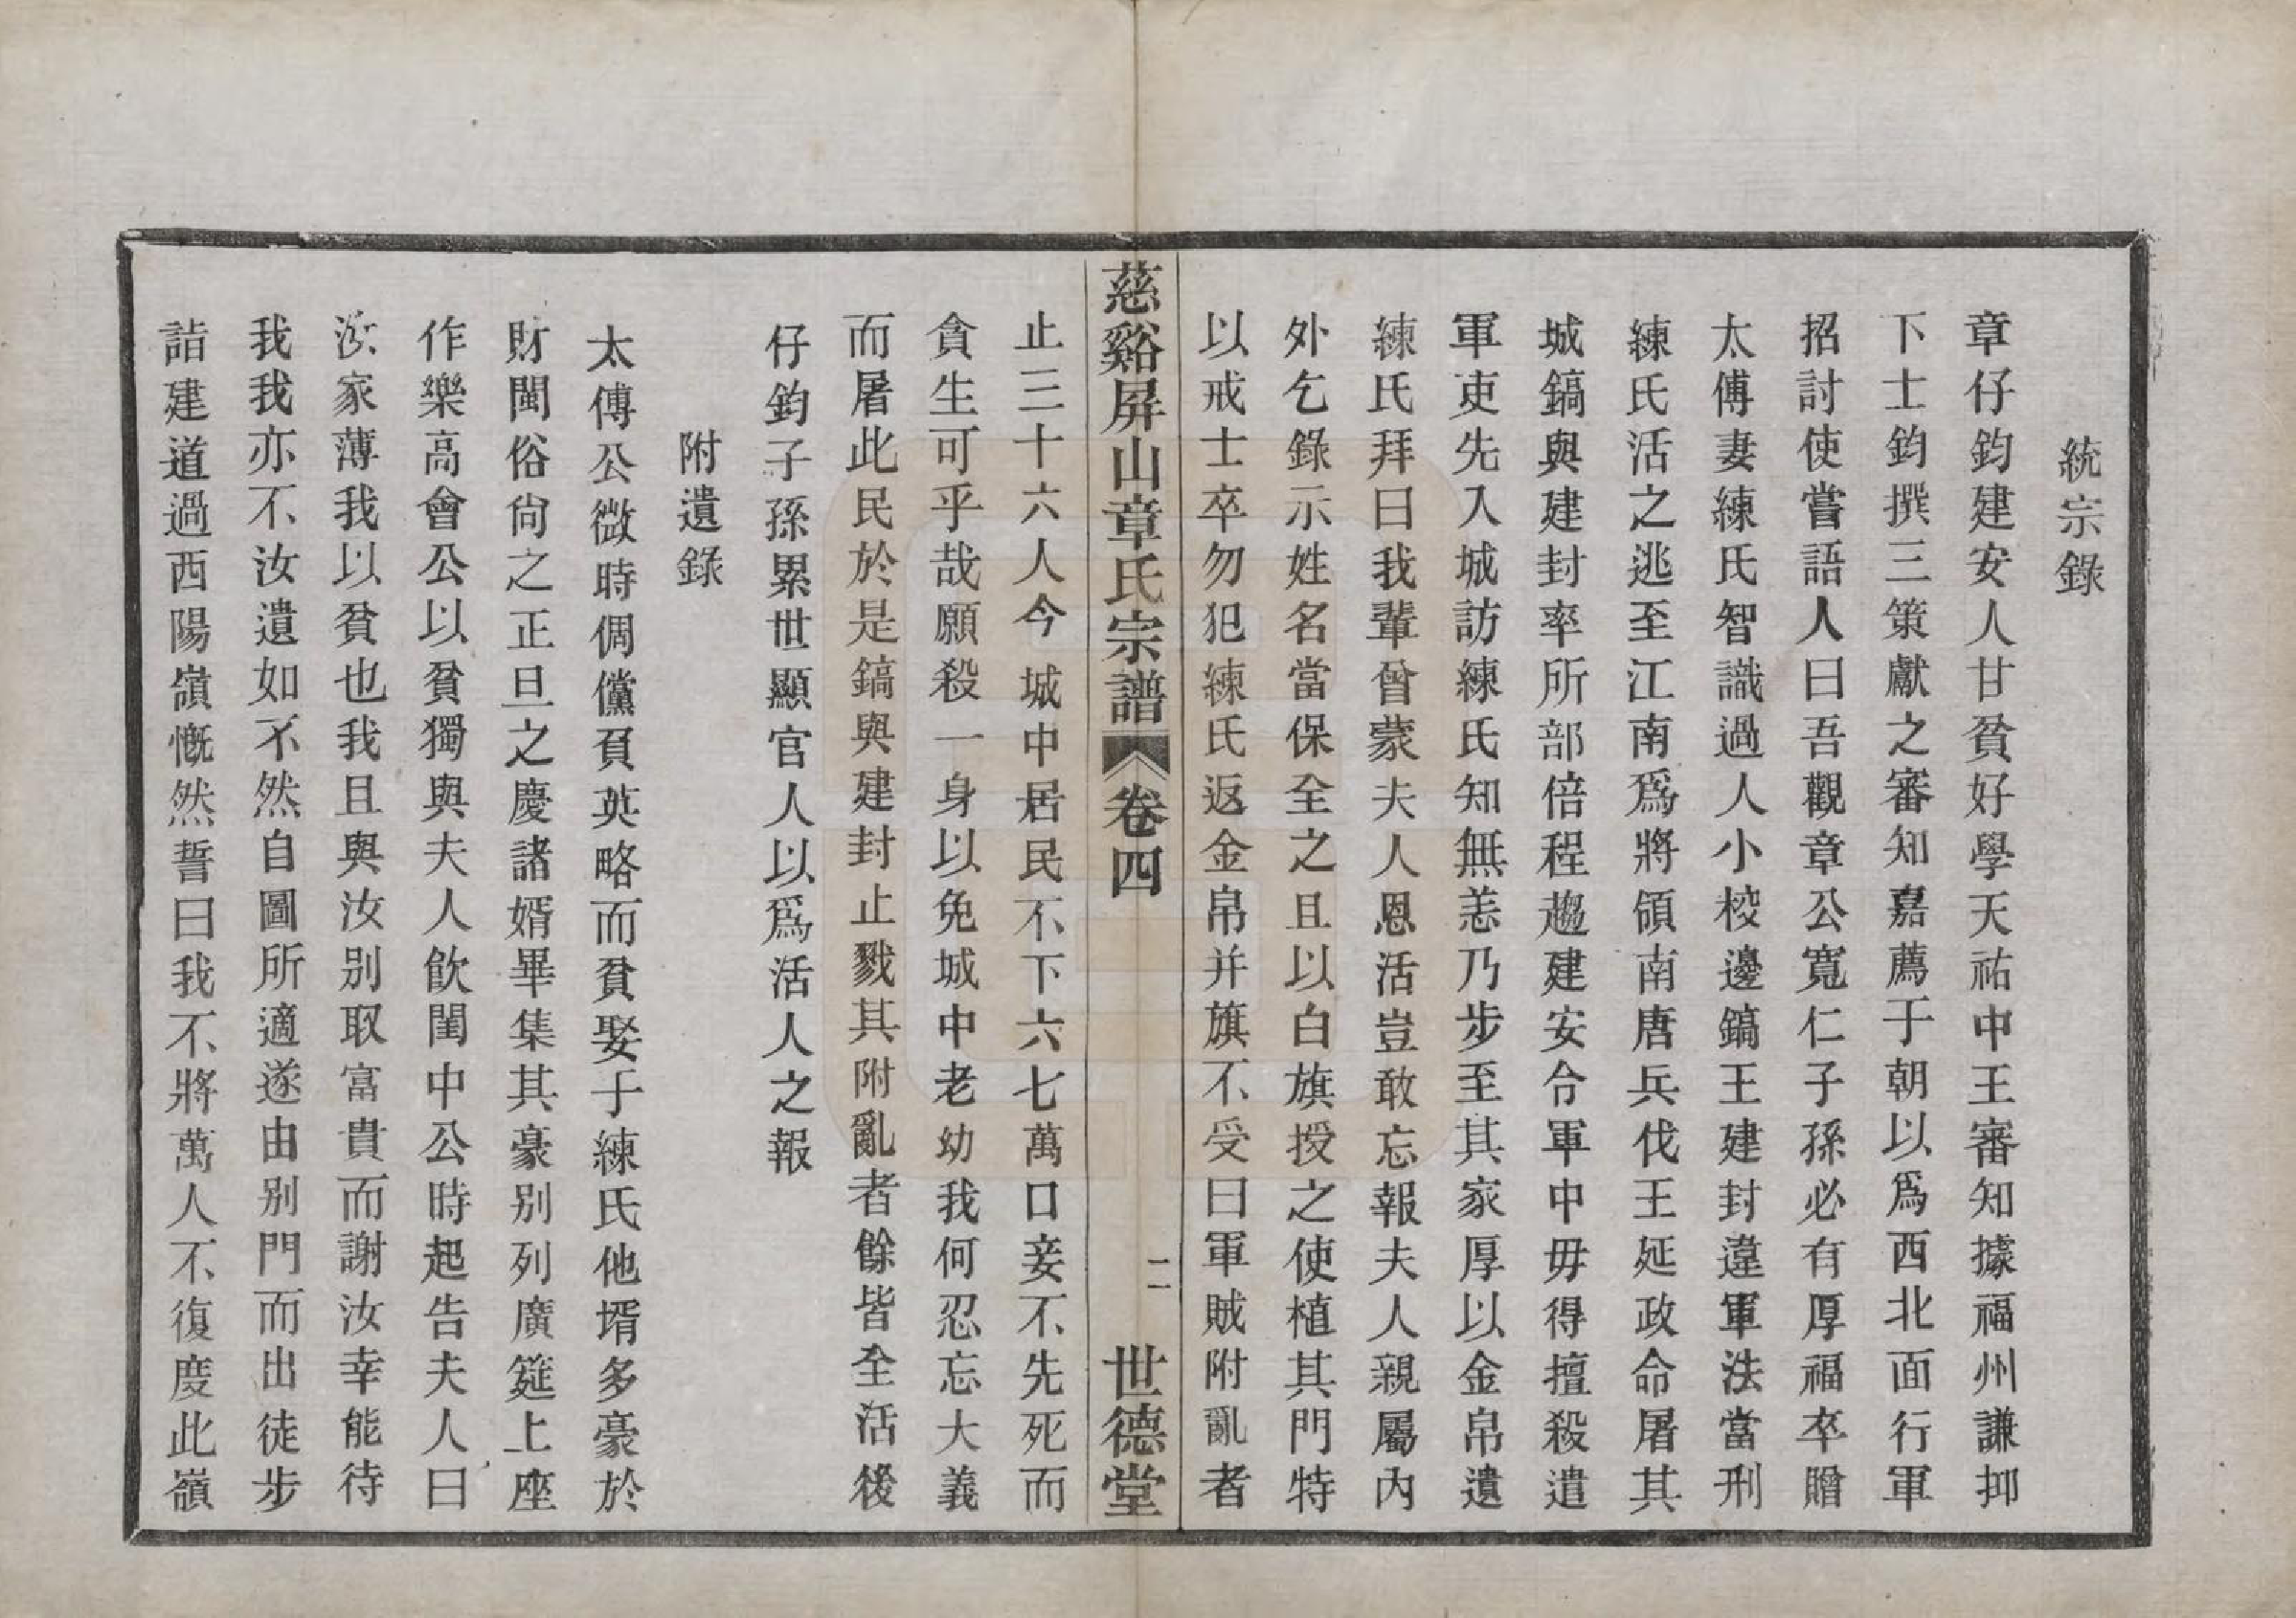 統宗錄
章仔鈞建安人甘貧好學天祐中王審知據福州謙抑
下士鈞撰三策獻之審知嘉薦于朝以爲西北面行軍
招討使嘗語人曰吾觀章公寬仁子孫必有厚福卒贈
太傅妻練氏智識過人小校邊鎬王建封違軍法當刑
練氏活之逃至江南爲將領南唐兵伐王延政命屠其
城鎬與建封率所部倍程趨建安令軍中毋得擅殺遣
軍吏先入城訪練氏知無恙乃步至其家厚以金帛遺
練氏拜曰我輩曾蒙夫人恩活豈敢忘報夫人親屬內
外乞錄示姓名當保全之且以白旗授之使植其門特
以戒士卒勿犯練氏返金帛并旗不受曰軍賊附亂者
慈谿屏山章氏宗譜 卷四 二 世德堂
止三十六人今城中居民不下六七萬口妾不先死而
貪生可乎哉願殺一身以免城中老幼我何忍忘大義
而屠此民於是鎬與建封止戮其附亂者餘皆全活後
仔鈞子孫累世顯官人以爲活人之報
附遺錄
太傅公微時倜儻負英略而貧娶于練氏他壻多豪於
財閩俗尙之正旦之慶諸婿畢集其豪別列廣筵上座
作樂高會公以貧獨與夫人飮閨中公時起告夫人曰
汝家薄我以貧也我且與汝別取富貴而謝汝幸能待
我我亦不汝遺如不然自圖所適遂由別門而出徒步
詣建道過西陽嶺慨然誓曰我不將萬人不復度此嶺